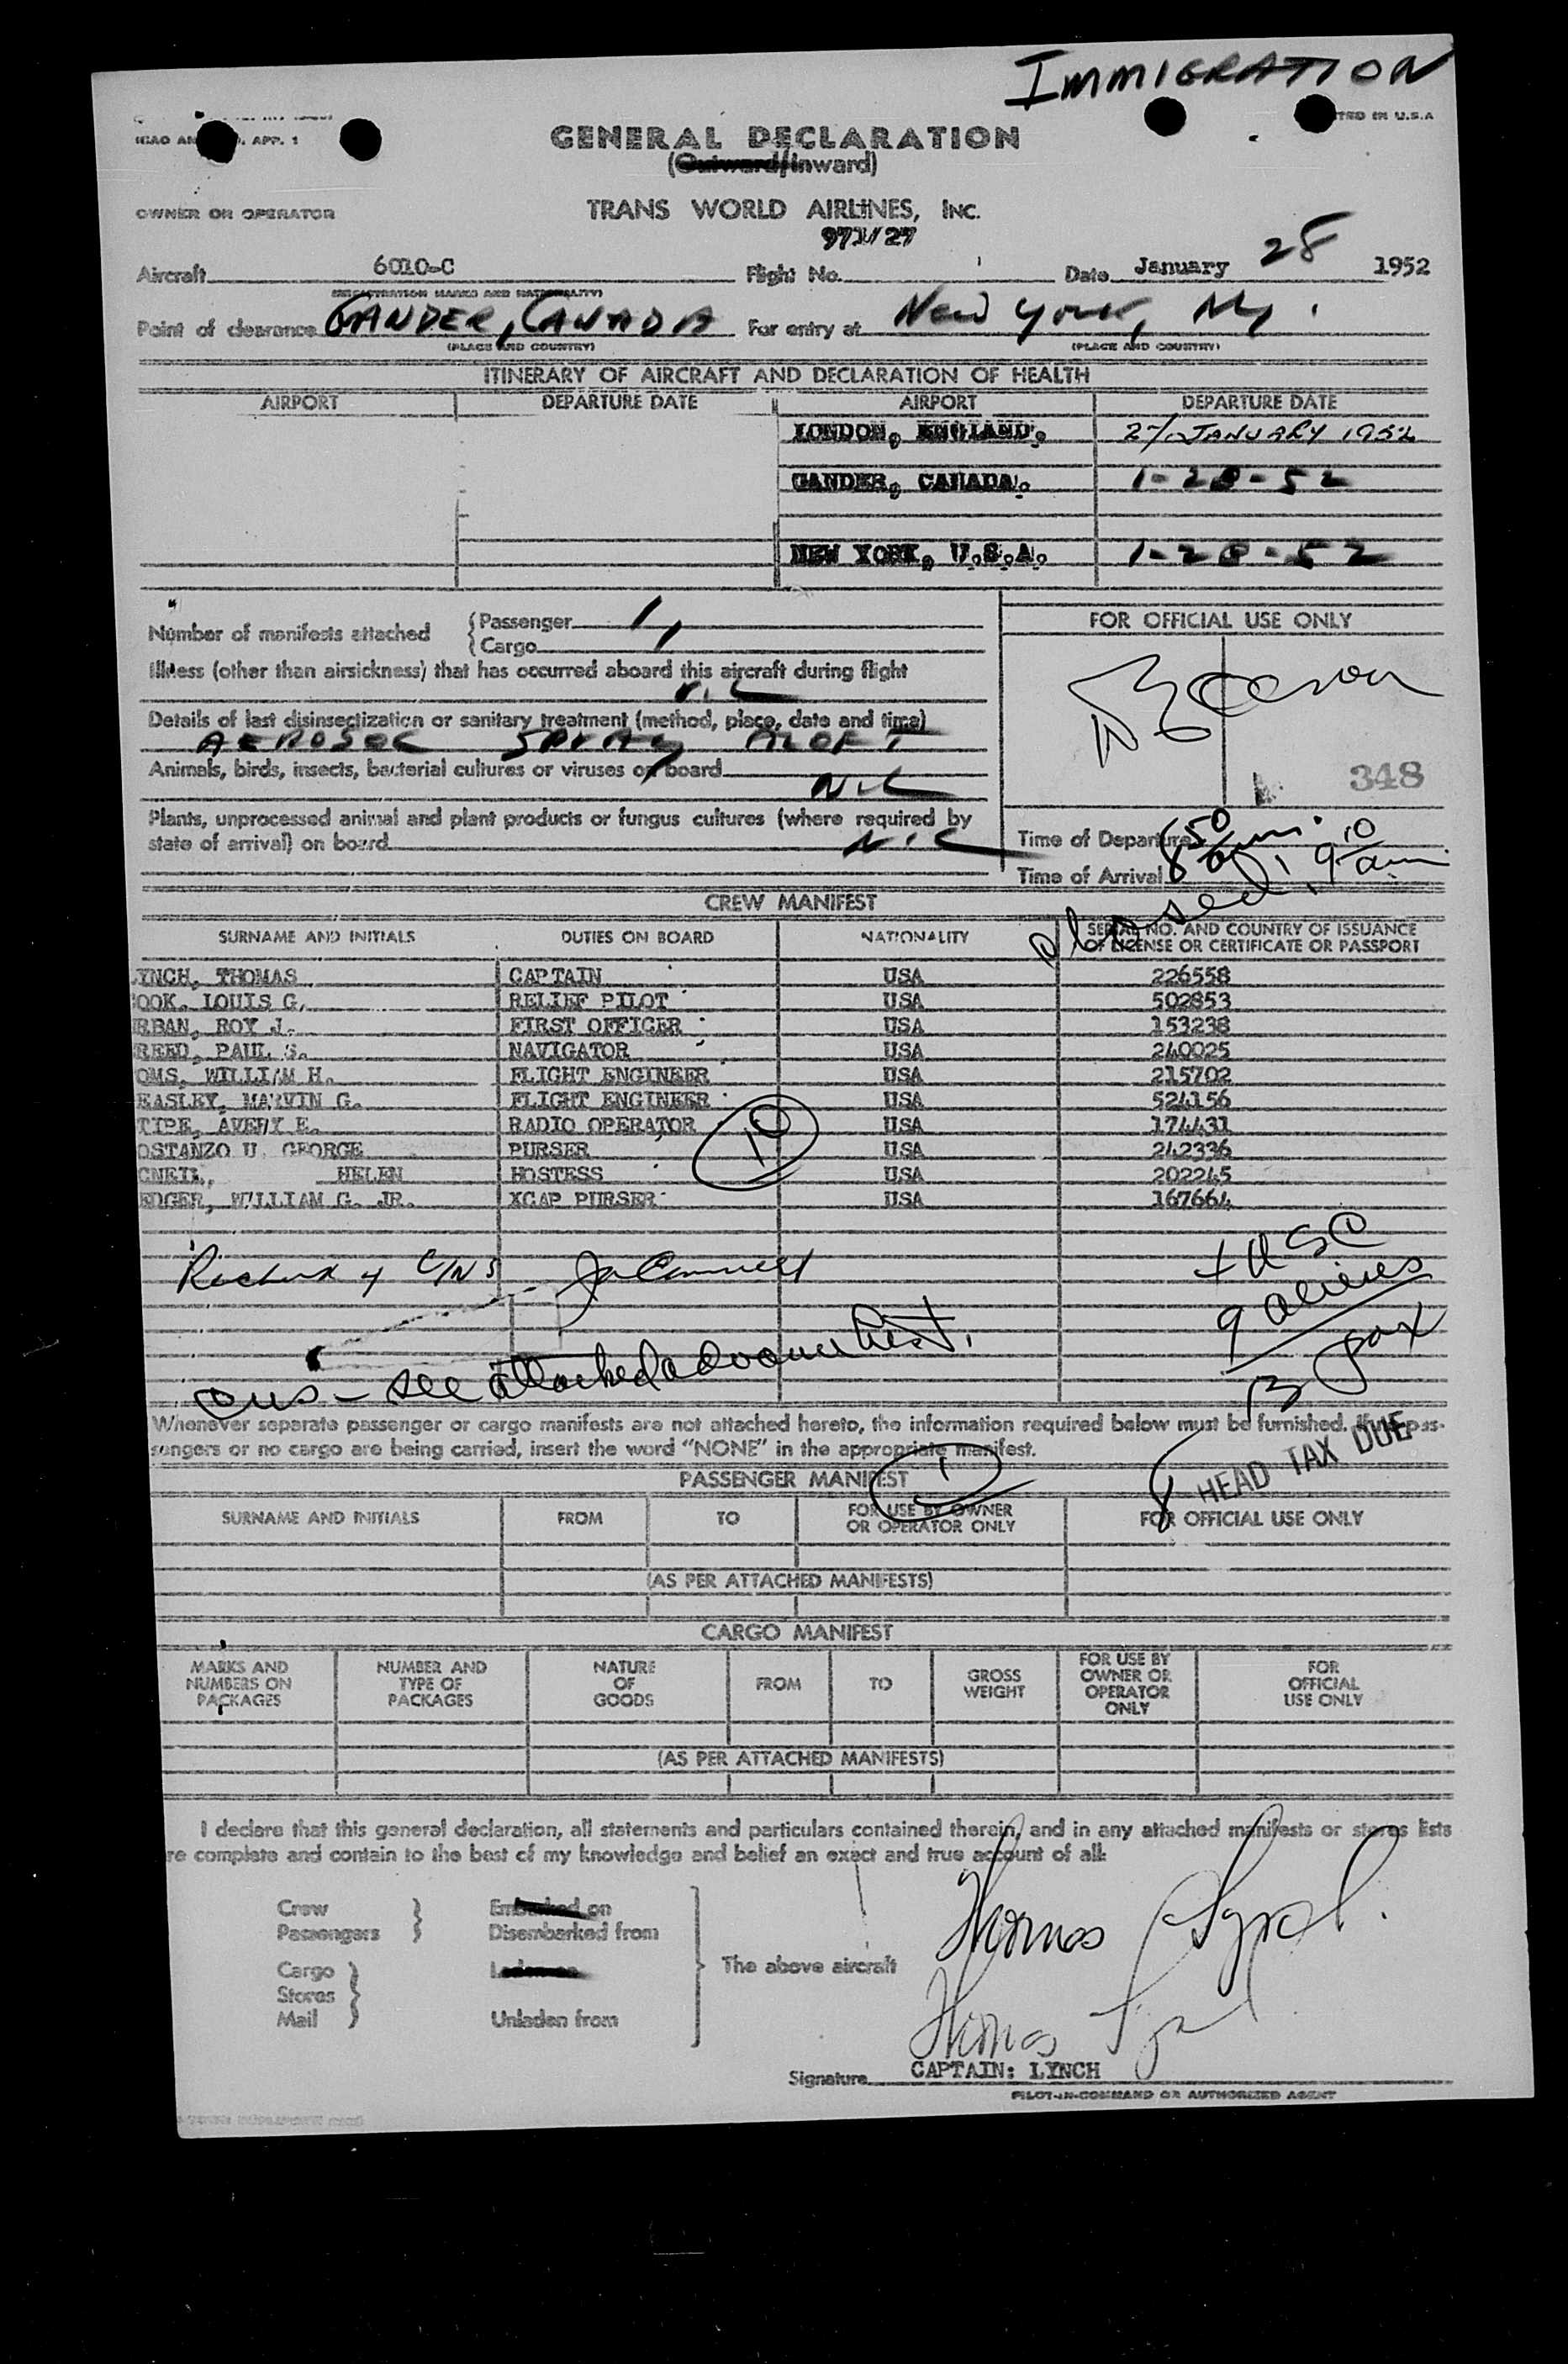 IMMIGRATION
APP. 1
GENERAL DECLARATION
(Outward/Inward)
OWNER OR OPERATOR TRANS WORLD AIRLINES, INC.
Aircraft 6010-C Flight No. 971/27 Date January 28 1952
(REGISTRATION MARKS AND NATIONALITY)
Point of clearance GANDER, CANADA For entry at New York, NY.
(PLACE AND COUNTRY) (PLACE AND COUNTRY)
ITINERARY OF AIRCRAFT AND DECLARATION OF HEALTH
AIRPORT DEPARTURE DATE AIRPORT DEPARTURE DATE
LONDON, ENGLAND. 27 JANUARY 1952
GANDER, CANADA. 1-28-52
NEW YORK, U.S.A. 1-28-52
Number of manifests attached Passenger 1
Cargo 1
FOR OFFICIAL USE ONLY
Illness (other than airsickness) that has occurred aboard this aircraft during flight
NIL
Details of last disinsectization or sanitary treatment (method, place, date and time)
AEROSOL SPRAY ALOFT
Animals, birds, insects, bacterial cultures or viruses on board
NIL
348
Plants, unprocessed animal and plant products or fungus cultures (where required by
state of arrival) on board NIL
Time of Departure
Time of Arrival 8 50 am. 9 10 am
CREW MANIFEST
SURNAME AND INITIALS DUTIES ON BOARD NATIONALITY SERIAL NO. AND COUNTRY OF ISSUANCE
OF LICENSE OR CERTIFICATE OR PASSPORT
YNCH, THOMAS CAPTAIN USA 226558
OOK. LOUIS G. RELIEF PILOT USA 502853
RBAN, ROY J. FIRST OFFICER USA 153238
REED, PAUL S. NAVIGATOR USA 240025
OMS, WILLIAM H. FLIGHT ENGINEER USA 215702
EASLEY, MARVIN G. FLIGHT ENGINEER USA 524156
TIPE, AVERY E. RADIO OPERATOR USA 174431
OSTANZO U. GEORGE PURSER USA 242336
CNEIL, HELEN HOSTESS USA 202245
EDGER, WILLIAM G. JR. XCAP PURSER USA 167664
10
4 USC
9 aliens
13 pax
see attached document.
Whenever separate passenger or cargo manifests are not attached hereto, the information required below must be furnished. If no pas-
sengers or no cargo are being carried, insert the word "NONE" in the appropriate manifest.
8 HEAD TAX DUE
PASSENGER MANIFEST
1
SURNAME AND INITIALS FROM TO FOR USE BY OWNER
OR OPERATOR ONLY FOR OFFICIAL USE ONLY
(AS PER ATTACHED MANIFESTS)
CARGO MANIFEST
MARKS AND
NUMBERS ON
PACKAGES NUMBER AND
TYPE OF
PACKAGES NATURE
OF
GOODS FROM TO GROSS
WEIGHT FOR USE BY
OWNER OR
OPERATOR
ONLY FOR
OFFICIAL
USE ONLY
(AS PER ATTACHED MANIFESTS)
I declare that this general declaration, all statements and particulars contained therein, and in any attached manifests or stores lists
re complete and contain to the best of my knowledge and belief an exact and true account of all:
Crew Embarked on
Passengers Disembarked from
Cargo Laden on
Stores
Mail Unladen from
The above aircraft
Thomas Lynch.
Thomas Lynch
Signature CAPTAIN: LYNCH
PILOT-IN-COMMAND OR AUTHORIZED AGENT